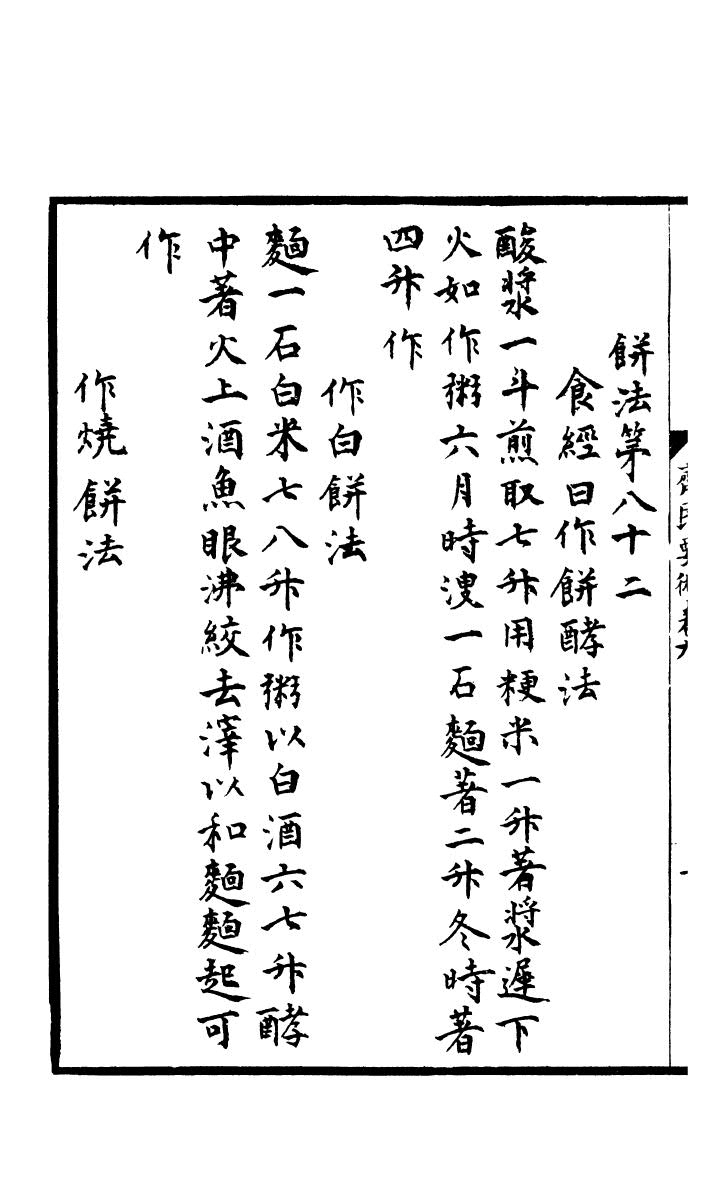 餅法第八十二
食經曰作餅酵法
酸漿一斗煎取七升用粳米一升著漿遲下
火如作粥六月時溲一石麵著二升冬時著
四升作
作白餅法
麵一石白米七八升作粥以白酒六七升酵
中著火上酒魚眼沸絞去滓以和麵麵起可
作
作燒餅法